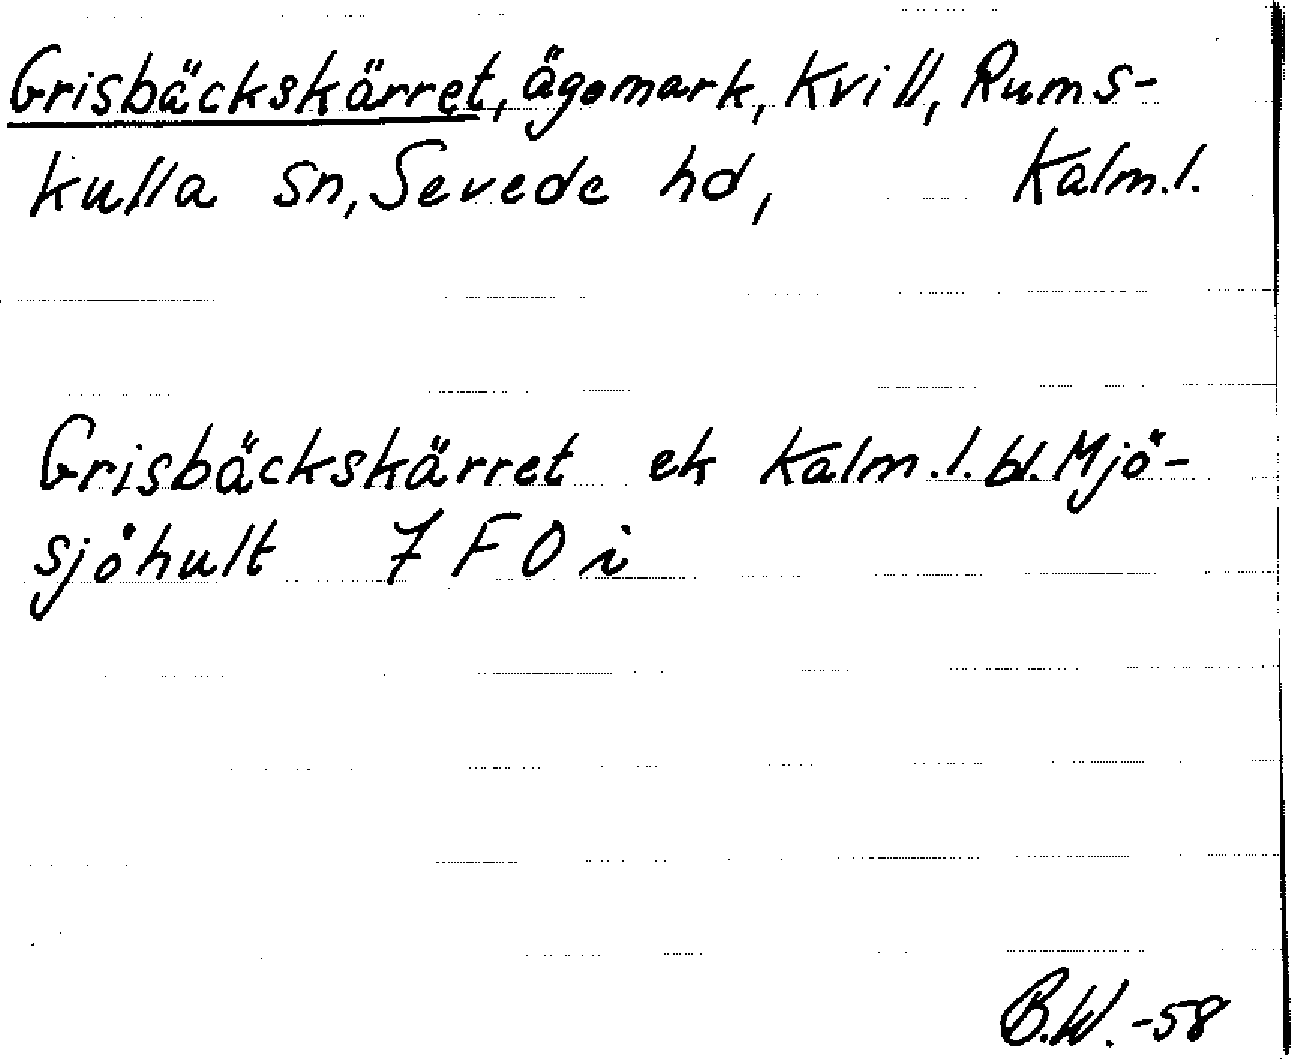 Grisbäckskärret, ägomark, Kvill, Rums-
kulla sn, Sevede hd, Kalm.l.
Grisbäckskärret ek Kalm.l. bl. Mjö-
sjöhult 7 F 0 i
B.W. -58